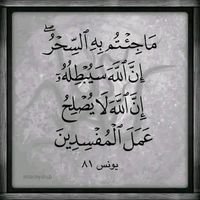 مَا جِئْتُم بِهِ ٱلسِّحْرُ ۖ
إِنَّ ٱللَّهَ سَيُبْطِلُهُۥٓ
إِنَّ ٱللَّهَ لَا يُصْلِحُ
عَمَلَ ٱلْمُفْسِدِينَ
يونس ٨١